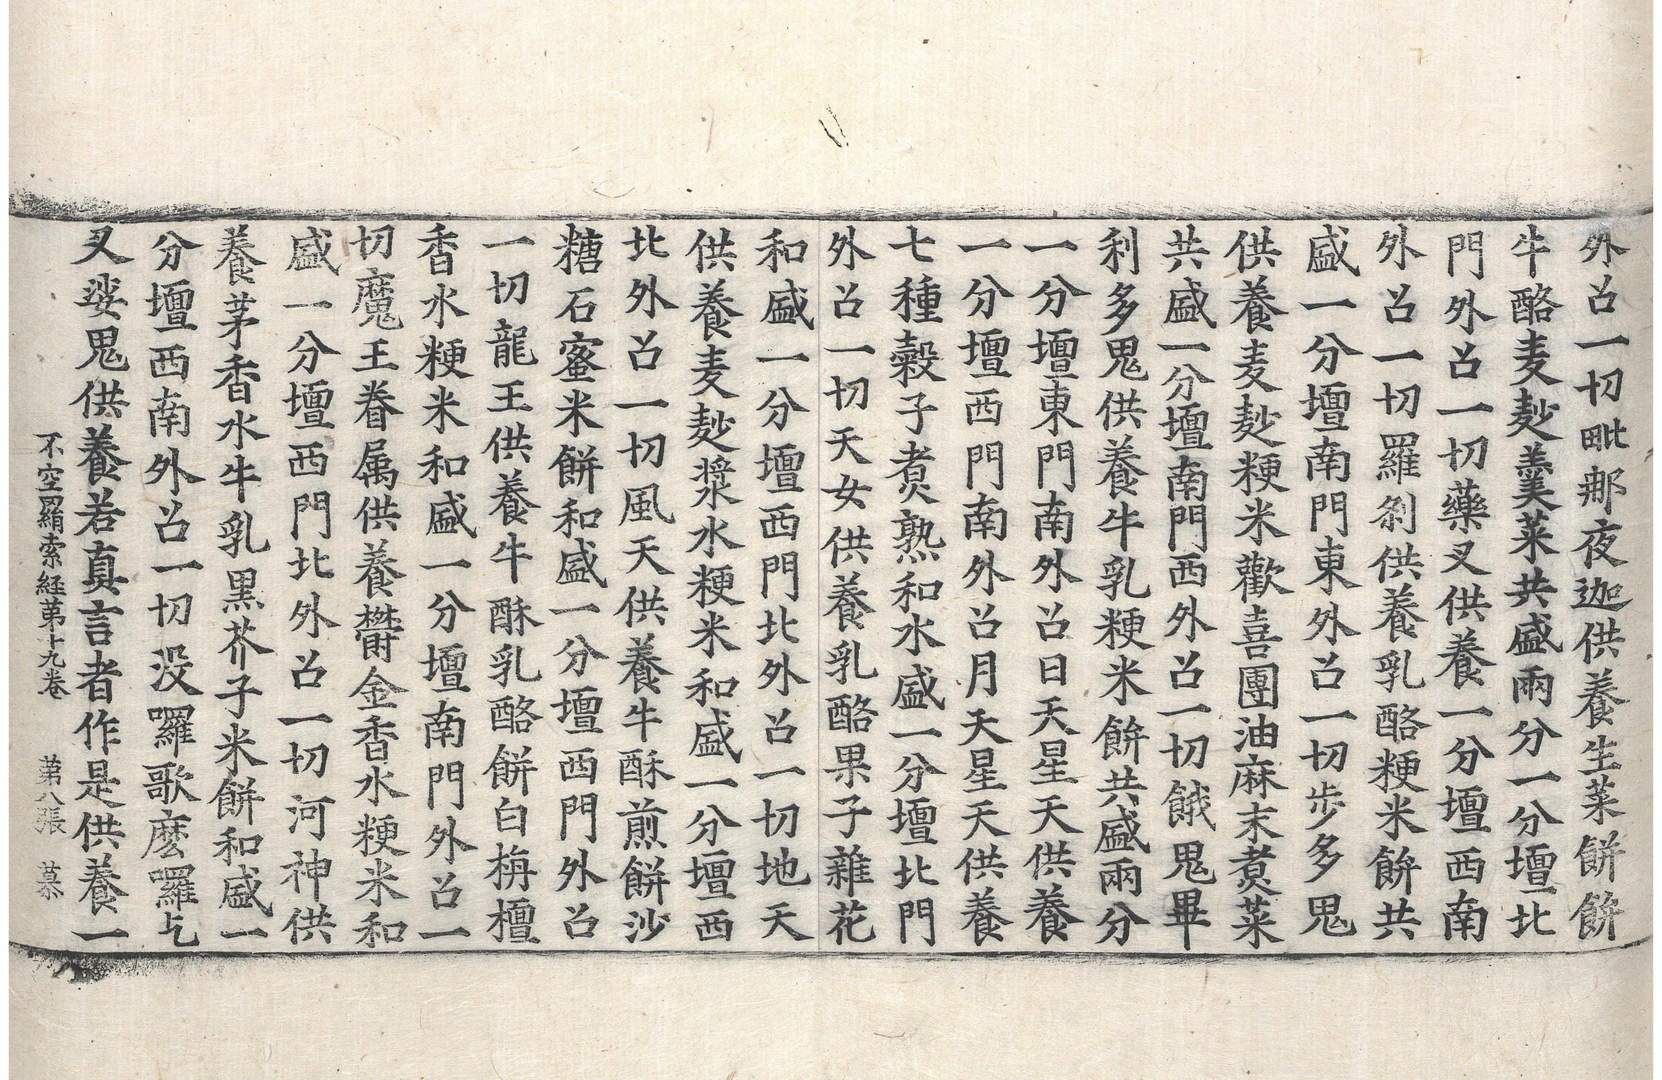 外召一切毗那夜迦供養生菜餅餅
牛酪麦麨羹菜共盛兩分一分壇北
門外召一切藥叉供養一分壇西南
外召一切羅剎供養乳酪粳米餅共
盛一分壇南門東外召一切步多鬼
供養麦麨粳米歡喜團油麻末煑菜
共盛一分壇南門西外召一切餓鬼畢
利多鬼供養牛乳粳米餅共盛兩分
一分壇東門南外召日天星天供養
一分壇西門南外召月天星天供養
七種穀子煑熟和水盛一分壇北門
外召一切天女供養乳酪果子雜花
和盛一分壇西門北外召一切地天
供養麦麨漿水粳米和盛一分壇西
北外召一切風天供養牛酥煎餅沙
糖石蜜米餅和盛一分壇西門外召
一切龍王供養牛酥乳酪餅白栴檀
香水粳米和盛一分壇南門外召一
切魔王眷属供養欝金香水粳米和
盛一分壇西門北外召一切河神供
養茅香水牛乳黒芥子米餅和盛一
分壇西南外召一切没囉歌麽囉乞
叉娑鬼供養若真言者作是供養一
不空羂索経第十九卷 第八張 慕